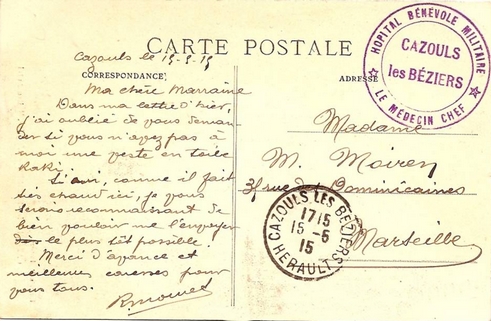 CARTE POSTALE
CORRESPONDANCE
ADRESSE
HOPITAL BÉNÉVOLE MILITAIRE
CAZOULS
les BÉZIERS
LE MÉDECIN CHEF
Cazouls le 15-5-15
Ma chère Marraine
Dans ma lettre d'hier,
j'ai oublié de vous deman-
der si vous n'avez pas à
moi une veste en toile
Kaki.
Si oui, comme il fait
très chaud ici, je vous
serais reconnaissant de
bien vouloir me l'envoyer
le plus tôt possible.
Merci d'avance et
meilleures caresses pour
vous tous.
Madame
M. Moiren
rue des Dominicaines
Marseille
CAZOULS LES BEZIERS
1715
15-5
15
HERAULT